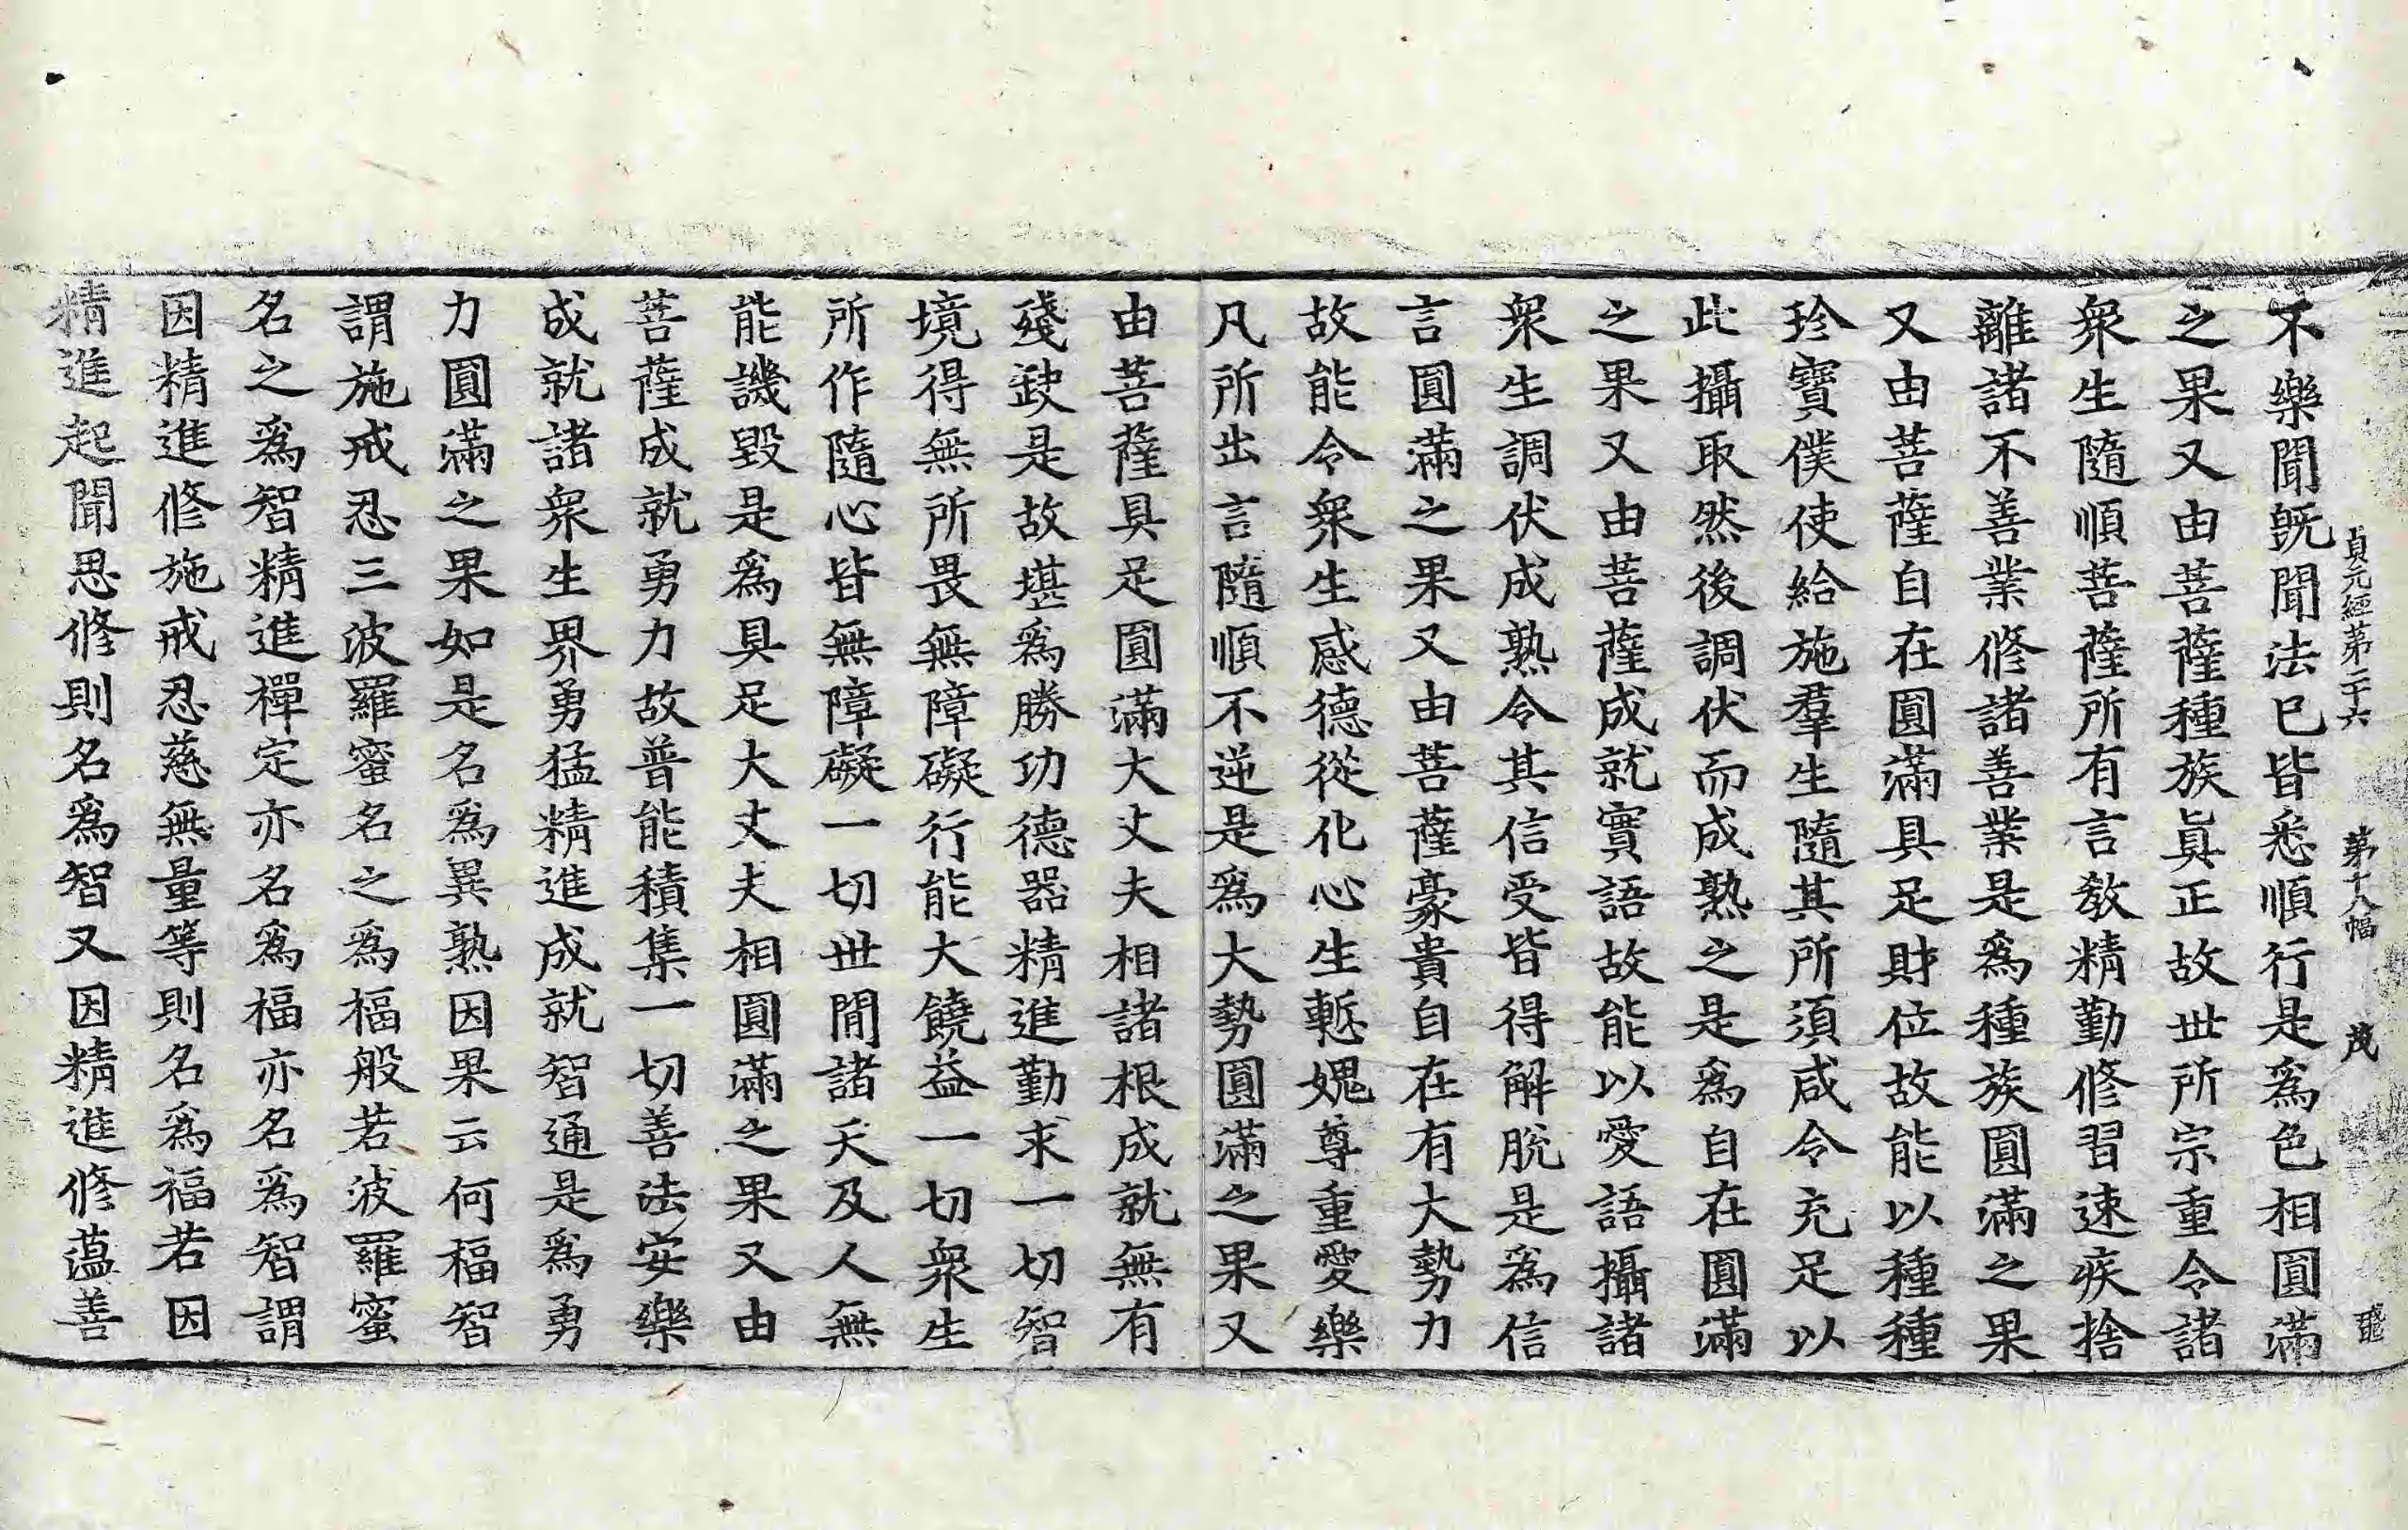 貞元經第二十六 第十八幅 茂
不樂聞既聞法已皆悉順行是爲色相圓滿
之果又由菩薩種族眞正故世所宗重令諸
衆生隨順菩薩所有言教精勤修習速疾捨
離諸不善業修諸善業是爲種族圓滿之果
又由菩薩自在圓滿具足財位故能以種種
珍寶僕使給施羣生隨其所須咸令充足以
此攝取然後調伏而成熟之是爲自在圓滿
之果又由菩薩成就實語故能以愛語攝諸
衆生調伏成熟令其信受皆得解脫是爲信
言圓滿之果又由菩薩豪貴自在有大勢力
故能令衆生感德從化心生慙媿尊重愛樂
凡所出言隨順不逆是爲大勢圓滿之果又
由菩薩具足圓滿大丈夫相諸根成就無有
殘缺是故堪爲勝功德器精進勤求一切智
境得無所畏無障礙行能大饒益一切衆生
所作隨心皆無障礙一切世間諸天及人無
能譏毀是爲具足大丈夫相圓滿之果又由
菩薩成就勇力故普能積集一切善法安樂
成就諸衆生界勇猛精進成就智通是爲勇
力圓滿之果如是名爲異熟因果云何福智
謂施戒忍三波羅蜜名之爲福般若波羅蜜
名之爲智精進禪定亦名爲福亦名爲智謂
因精進修施戒忍慈無量等則名爲福若因
精進起聞思修則名爲智又因精進修蘊善